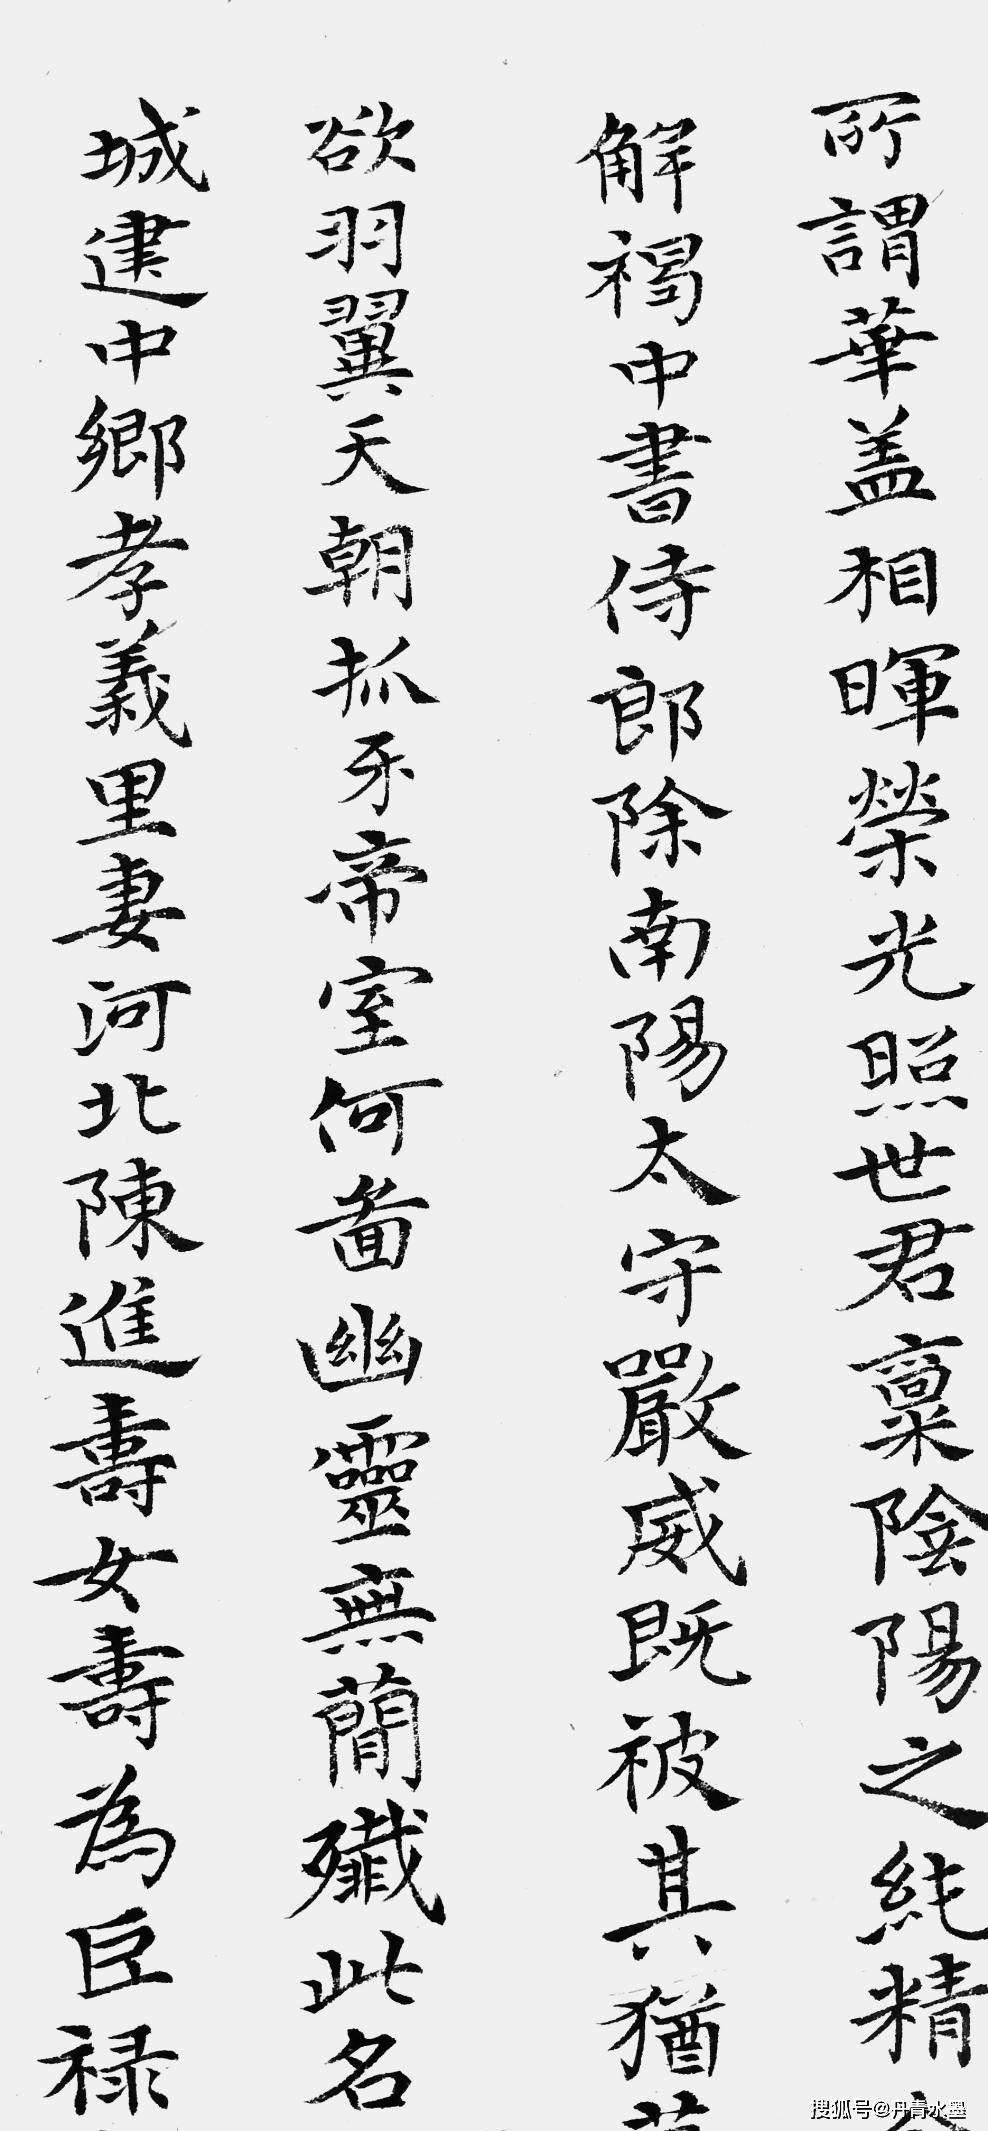 所謂華盖相暉榮光照世君稟陰陽之純精
解褐中書侍郎除南陽太守嚴威既被其猶
欲羽翼天朝抓牙帝室何啚幽靈無簡殲此名
城建中鄉孝義里妻河北陳進壽女壽為巨禄
搜狐号@丹青水墨